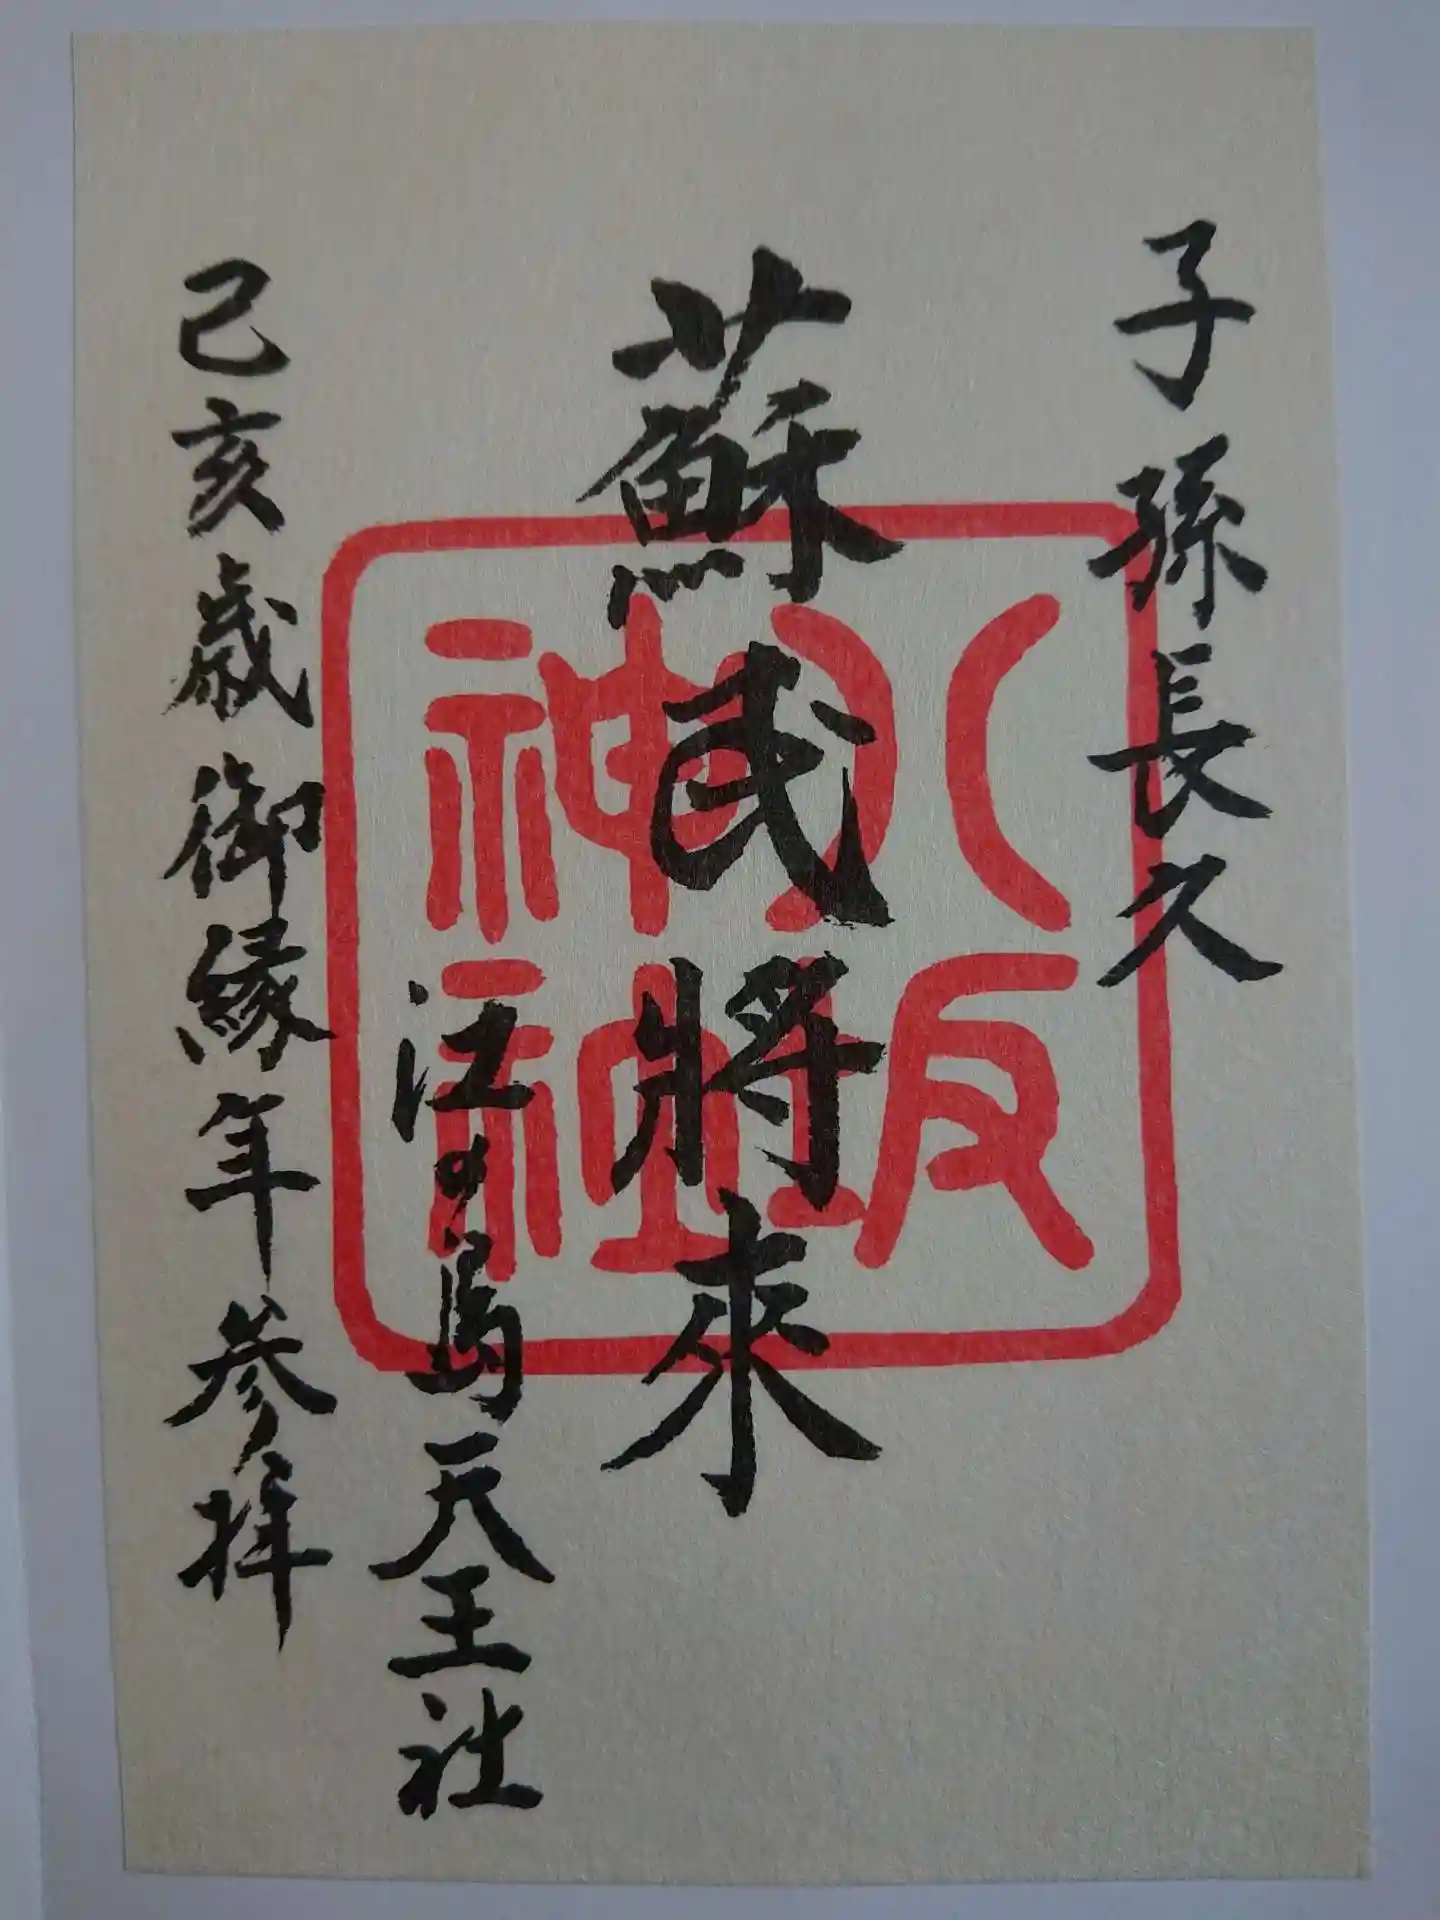 子孫長久
蘇民將来
江の島天王社
己亥歳御縁年参拝
八坂神社